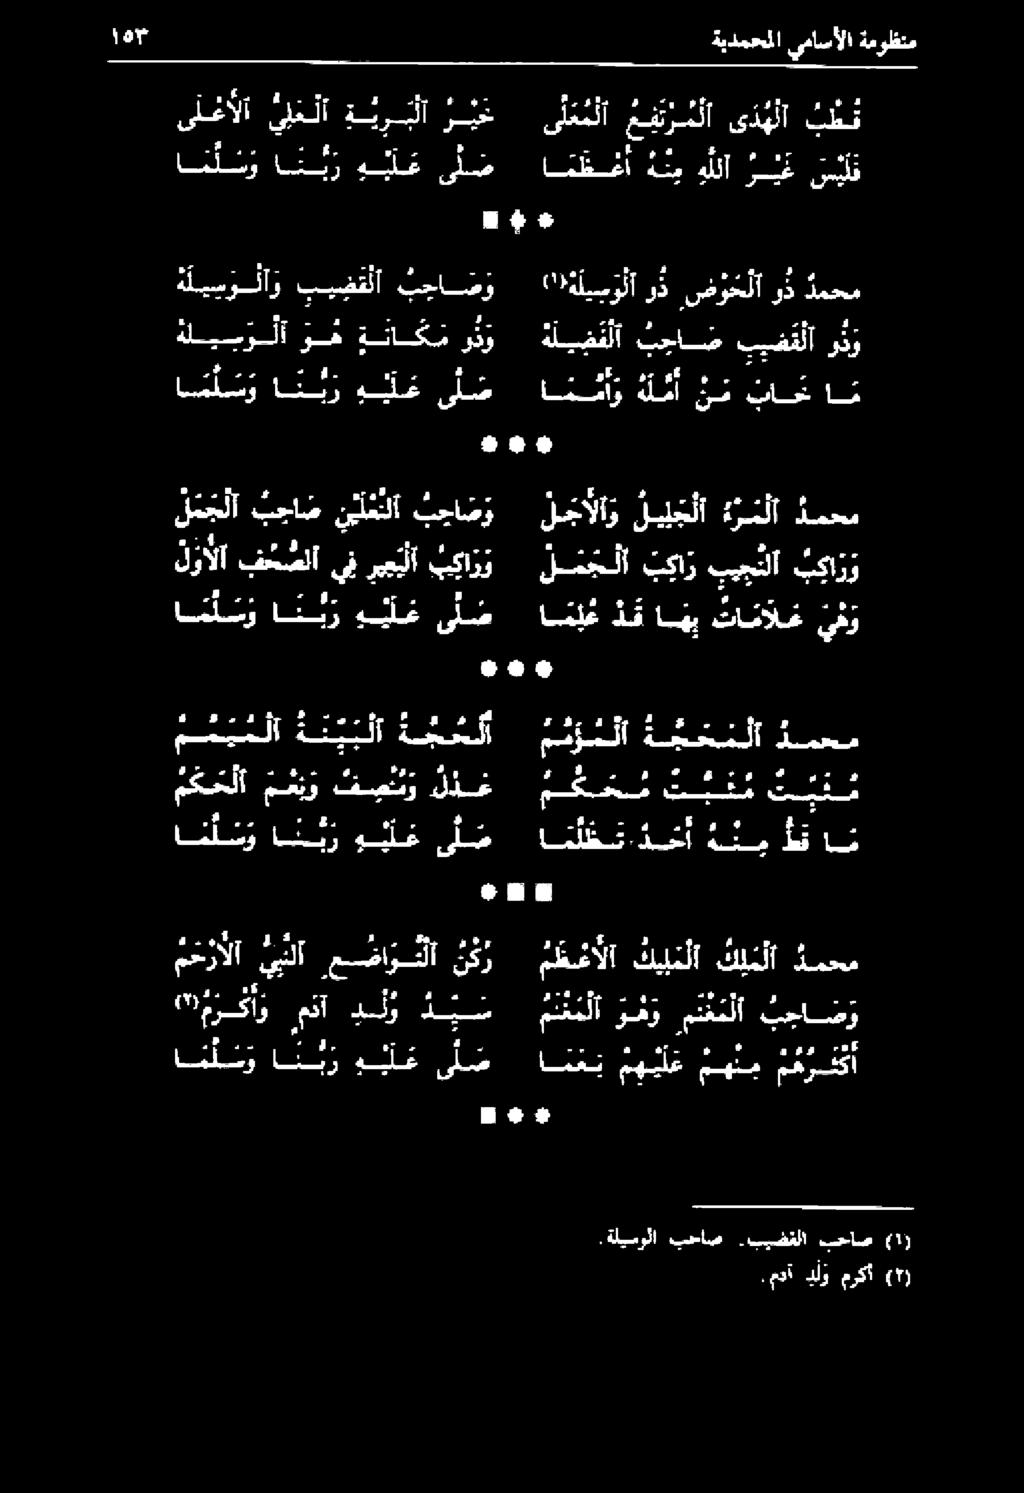 منظومة الأسامي المحمدية ١٥٣
قُطْبُ ٱلْهُدَى ٱلْمُرْتَفِعُ ٱلْمُعَلَّى خَيْرُ ٱلْبَرِيَّةِ ٱلْعَلِيُّ ٱلأَعْلَى
فَلَيْسَ غَيْرُ ٱللَّهِ مِنْهُ أَعْظَمَا صَلَّى عَلَيْهِ رَبُّنَا وَسَلَّمَا
محمدٌ ذُو ٱلْحَوْضِ ذُو ٱلْوَسِيلَهْ(١) وَصَاحِبُ ٱلْقَضِيبِ وَٱلْوَسِيلَهْ
وَذُو ٱلْقَضِيبِ صَاحِبُ ٱلْفَضِيلَهْ وَذُو مَكَانَةٍ هُوَ ٱلْوَسِيلَهْ
مَا خَابَ مَنْ أَمَّلَهُ وَأَمَّمَا صَلَّى عَلَيْهِ رَبُّنَا وَسَلَّمَا
محمدُ ٱلْمَرْءُ ٱلْجَلِيلُ وَٱلأَجَلّْ وَصَاحِبُ ٱلنَّعْلَيْنِ صَاحِبُ ٱلْجَمَلْ
وَرَاكِبُ ٱلنَّجِيبِ رَاكِبُ ٱلْجَمَلْ وَرَاكِبُ ٱلْبَعِيرِ فِي ٱلصُّحْفِ ٱلأُوَلْ
وَهْيَ عَلاَمَاتٌ بِهَا قَدْ عُلِمَا صَلَّى عَلَيْهِ رَبُّنَا وَسَلَّمَا
محمدُ ٱلْمَحَجَّةُ ٱلْمُؤَمَّمُ ٱلْحُجَّةُ ٱلْبَيِّنَةُ ٱلْمُيَمَّمُ
مُثَبِّتٌ مُثَبَّتٌ مُحَكَّمُ عَدْلٌ وَمُنْصِفٌ وَنِعْمَ ٱلْحَكَمُ
مَا قَطُّ مِنْهُ أَحَدٌ تَظَلَّمَا صَلَّى عَلَيْهِ رَبُّنَا وَسَلَّمَا
محمدُ ٱلْمَلِكُ ٱلْمَلِيكُ ٱلأَعْظَمُ رُكْنُ ٱلتَّوَاضُعِ ٱلنَّبِيُّ ٱلأَرْحَمُ
وَصَاحِبُ ٱلْمَغْنَمِ وَهْوَ ٱلْمَغْنَمُ سَيِّدُ وُلْدِ آدَمٍ وَأَكْرَمُ(٢)
أَكْثَرُهُمْ مِنْهُمْ عَلَيْهِمْ نِعَمَا صَلَّى عَلَيْهِ رَبُّنَا وَسَلَّمَا
(١) صاحب القضيب. صاحب الوسيلة.
(٢) أكرم وَلَدِ آدم.